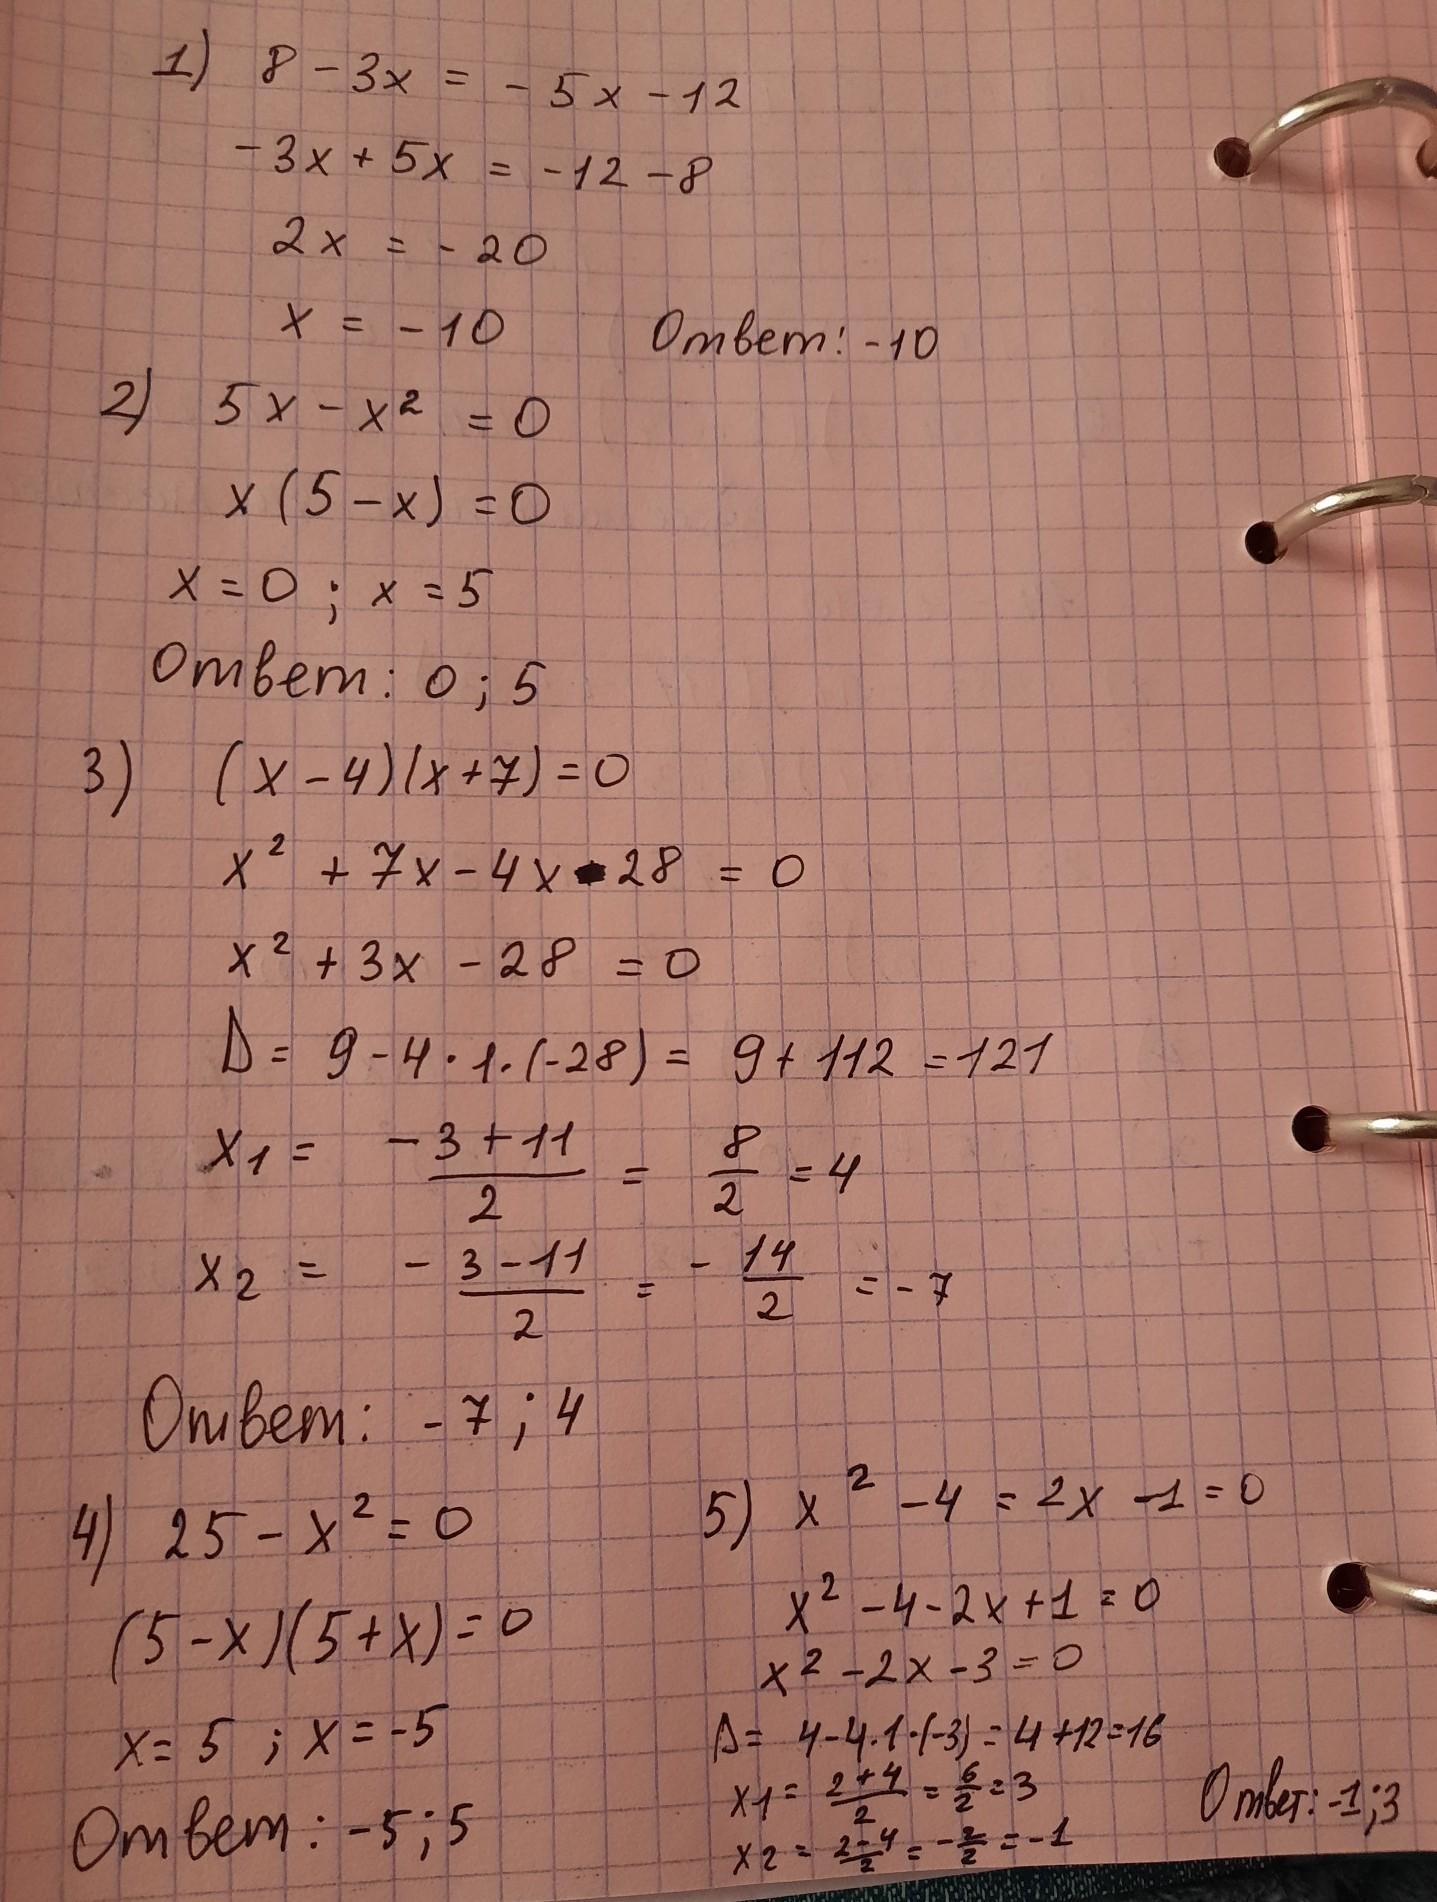 1) 8 - 3x = - 5x - 12
-3x + 5x = -12 - 8
2x = - 20
x = - 10 Ответ: -10
2) 5x - x² = 0
x (5 - x) = 0
x = 0 ; x = 5
Ответ: 0 ; 5
3) (x - 4)(x + 7) = 0
x² + 7x - 4x - 28 = 0
x² + 3x - 28 = 0
D = 9 - 4 · 1 · (-28) = 9 + 112 = 121
x1 = -3 + 11 / 2 = 8/2 = 4
x2 = - 3 - 11 / 2 = - 14/2 = - 7
Ответ: - 7 ; 4
4) 25 - x² = 0
(5 - x)(5 + x) = 0
x = 5 ; x = -5
Ответ: -5 ; 5
5) x² - 4 = 2x - 1 = 0
x² - 4 - 2x + 1 = 0
x² - 2x - 3 = 0
D = 4 - 4 · 1 · (-3) = 4 + 12 = 16
x1 = 2 + 4 / 2 = 6/2 = 3
x2 = 2 - 4 / 2 = - 2/2 = - 1
Ответ: -1 ; 3